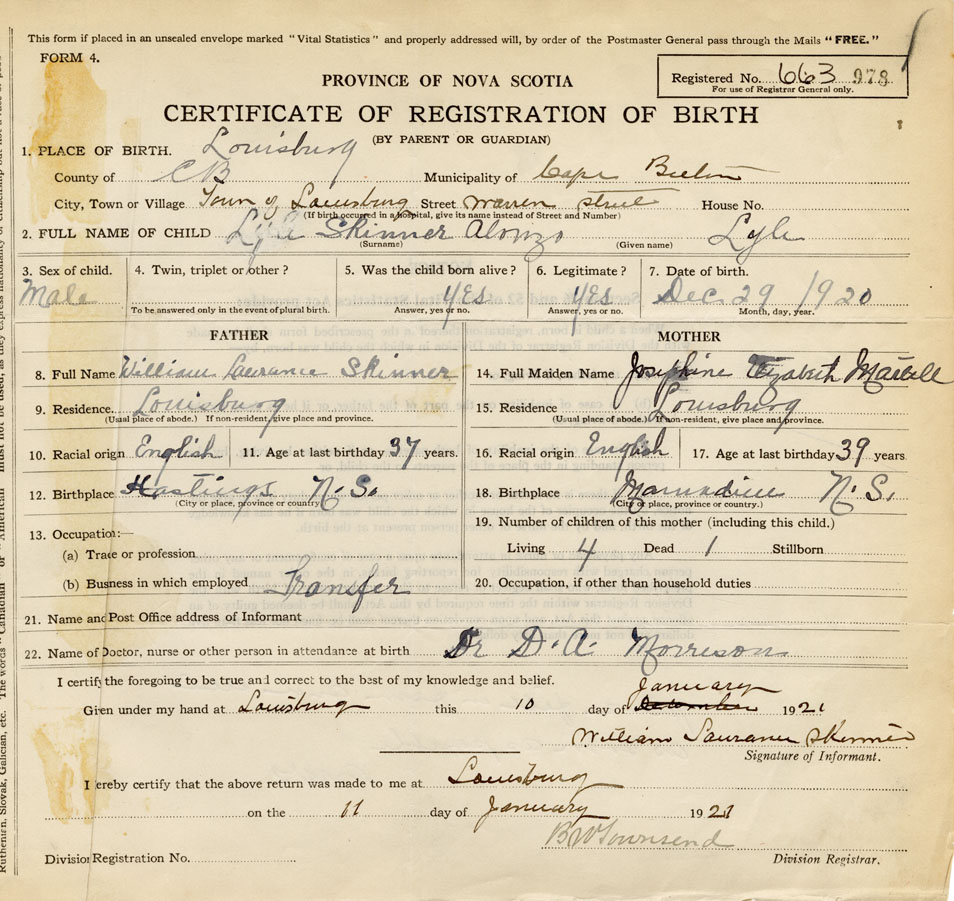 This form if placed in an unsealed envelope marked "Vital Statistics" and properly addressed will, by order of the Postmaster General pass through the Mails "FREE."
FORM 4.
Registered No. 663 978
For use of Registrar General only.
PROVINCE OF NOVA SCOTIA
CERTIFICATE OF REGISTRATION OF BIRTH
(BY PARENT OR GUARDIAN)
1. PLACE OF BIRTH. Louisburg
County of C B Municipality of Cape Breton
City, Town or Village Town of Louisburg Street Warren street House No.
(If birth occurred in a hospital, give its name instead of Street and Number)
2. FULL NAME OF CHILD Lyle Skinner Alonzo Lyle
(Surname) (Given name)
3. Sex of child. 4. Twin, triplet or other? 5. Was the child born alive? 6. Legitimate? 7. Date of birth.
Male YES YES Dec 29 1920
To be answered only in the event of plural birth. Answer, yes or no. Answer, yes or no. Month, day, year.
FATHER MOTHER
8. Full Name William Laurance Skinner 14. Full Maiden Name Josephine Elizabeth Martell
9. Residence. Louisburg 15. Residence Louisburg
(Usual place of abode.) If non-resident, give place and province. (Usual place of abode.) If non-resident, give place and province.
10. Racial origin English 11. Age at last birthday 37 years. 16. Racial origin English 17. Age at last birthday 39 years.
12. Birthplace Hastings N.S. 18. Birthplace N.S.
(City or place, province or country) (City or place, province or country.)
13. Occupation:— 19. Number of children of this mother (including this child.)
(a) Trade or profession Living 4 Dead 1 Stillborn
(b) Business in which employed Transfer 20. Occupation, if other than household duties
21. Name and Post Office address of Informant
22. Name of Doctor, nurse or other person in attendance at birth Dr D. A. Morrison
I certify the foregoing to be true and correct to the best of my knowledge and belief.
January
Given under my hand at Louisburg this 10 day of December 1921
William Laurance Skinner
Signature of Informant.
I hereby certify that the above return was made to me at Louisburg
on the 11 day of January 1921
B W Townsend
Division Registration No. Division Registrar.
Ruthenian, Slovak, Galician, etc. The words "Canadian" or "American" must not be used, as they express nationality or citizenship but not a